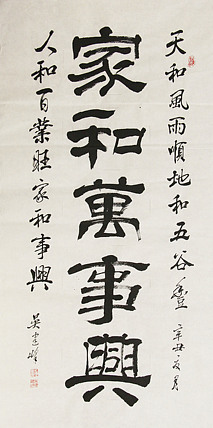 天和風雨順地和五谷豐 辛丑夏月
家和萬事興
人和百業旺家和事興